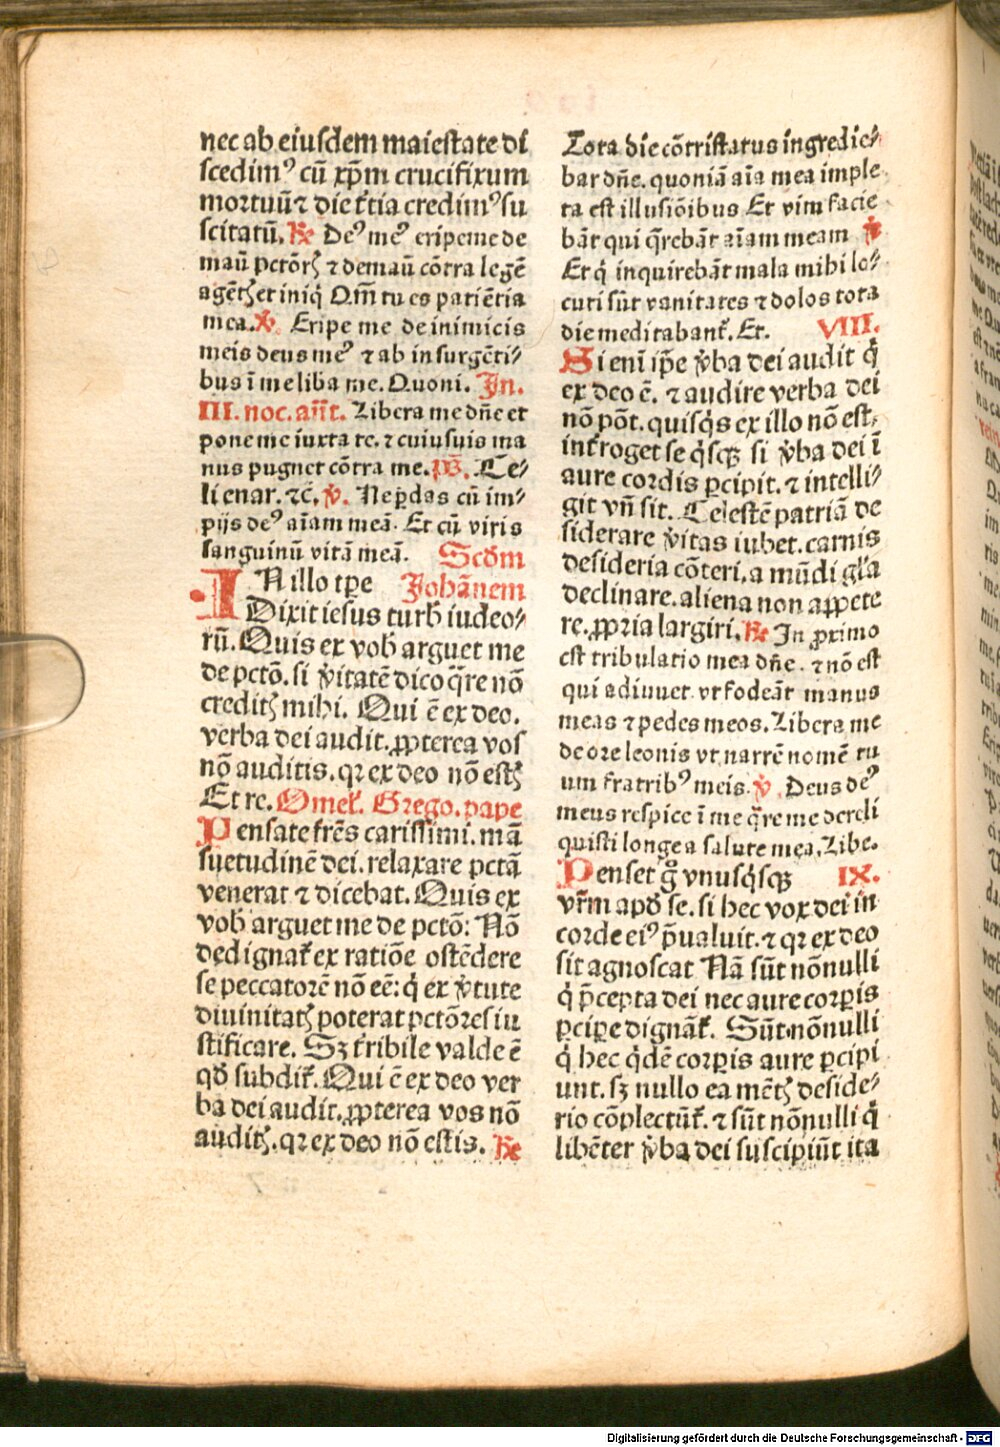 nec ab eiusdem maiestate di
scedimꝰ cū xp̄m crucifixum
mortuū ⁊ die t̄tia credimꝰ su
scitatū. R̄ Deꝰ meꝰ eripe me de
manū pctōrꝭ ⁊ de manū cōtra legē
agētꝭ et iniq̇ Qm̄ tu es patiētia
mea. V̄ Eripe me de inimicis
meis deus meꝰ ⁊ ab insurgēti⸗
bus ī me liba me. Quoni. In.
III. noc. an̄t. Libera me dn̄e et
pone me iuxta te. ⁊ cuiusuis ma
nus pugnet cōtra me. pˢ. Ce⸗
li enar. ⁊c̄. v̄. Ne ꝑdas cū im⸗
pijs deꝰ aīam meā. Et cū viris
sanguinū vitā meā. Scd̄m
IN illo tꝑe Johānem
Dixit iesus turb̄ iudeo⸗
rū. Quis ex vob̄ arguet me
de pctō. si v̄itatē dico q̄re nō
creditꝭ mihi. Qui ē ex deo.
verba dei audit. ꝓpterea vos
nō auditis. qꝛ ex deo nō estꝭ
Et re. Omel̄. Grego. pape
Pensate fr̄es carissimi. mā
suetudinē dei. relaxare pctā
venerat ⁊ dicebat. Quis ex
vob̄ arguet me de pctō: Nō
dedignat̄ ex ratiōe ostēdere
se peccatorē nō eē: q̇ ex v̄tute
diuinitatꝭ poterat pctōres iu
stificare. Sꝫ t̄ribile valde ē
qd̄ subdit̄. Qui ē ex deo ver
ba dei audit. ꝓpterea vos nō
auditꝭ. qꝛ ex deo nō estis. R̄
Tota die cōtristatus ingredie⸗
bar dn̄e. quoniā aīa mea imple
ta est illusiōibus Et vim facie
bāt qui q̄rebāt aīam meam V̄
Et q̇ inquirebāt mala mihi lo⸗
cuti sūt vanitates ⁊ dolos tota
die meditabant̄. Et. VIII.
Si enī ip̄e v̄ba dei audit q̇
ex deo ē. ⁊ audire verba dei
nō pōt. quisq̇s ex illo nō est.
int̄roget se q̇sqꝫ si v̄ba dei ī
aure cordis ꝑcipit. ⁊ intelli⸗
git vn̄ sit. Celestē patriā de
siderare v̄itas iubet. carnis
desideria cōteri. a mūdi gl̄a
declinare. aliena non appete
re. ꝓpria largiri. R̄ In ꝓximo
est tribulatio mea dn̄e. ⁊ nō est
qui adiuuet vt fodeāt manus
meas ⁊ pedes meos. Libera me
de ore leonis vt narrē nomē tu
um fratribꝰ meis. v̄ Deus deꝰ
meus respice ī me q̄re me dereli
quisti longe a salute mea. Libe.
Penset g̊ vnusq̇sqꝫ IX.
vr̄m apd̄ se. si hec vox dei in
corde eiꝰ p̄ualuit. ⁊ qꝛ ex deo
sit agnoscat Nā sūt nōnulli
q̇ p̄cepta dei nec aure corꝑis
ꝑciꝑe dignāt̄. Sūt nōnulli
q̇ hec q̇dē corꝑis aure ꝑcipi
unt. sꝫ nullo ea mētꝭ deside⸗
rio cōplectūt̄. ⁊ sūt nōnulli q̇
libēter v̄ba dei suscipiūt ita
Digitalisierung gefördert durch die Deutsche Forschungsgemeinschaft - DFG